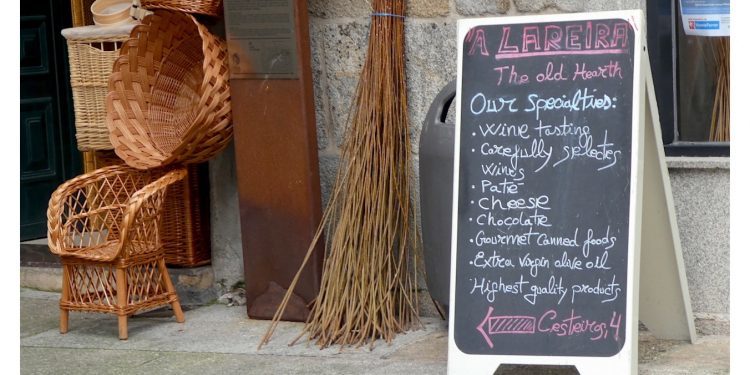 "A LAREIRA"
The old Hearth
Our Specialties:
• Wine tasting
• Carefully selectes
Wines
• Patié
• cheese
• Chocolate
• Gourmet canned foods
• Extra virgin alive oil
Highest quality products
Cesteiros, 4